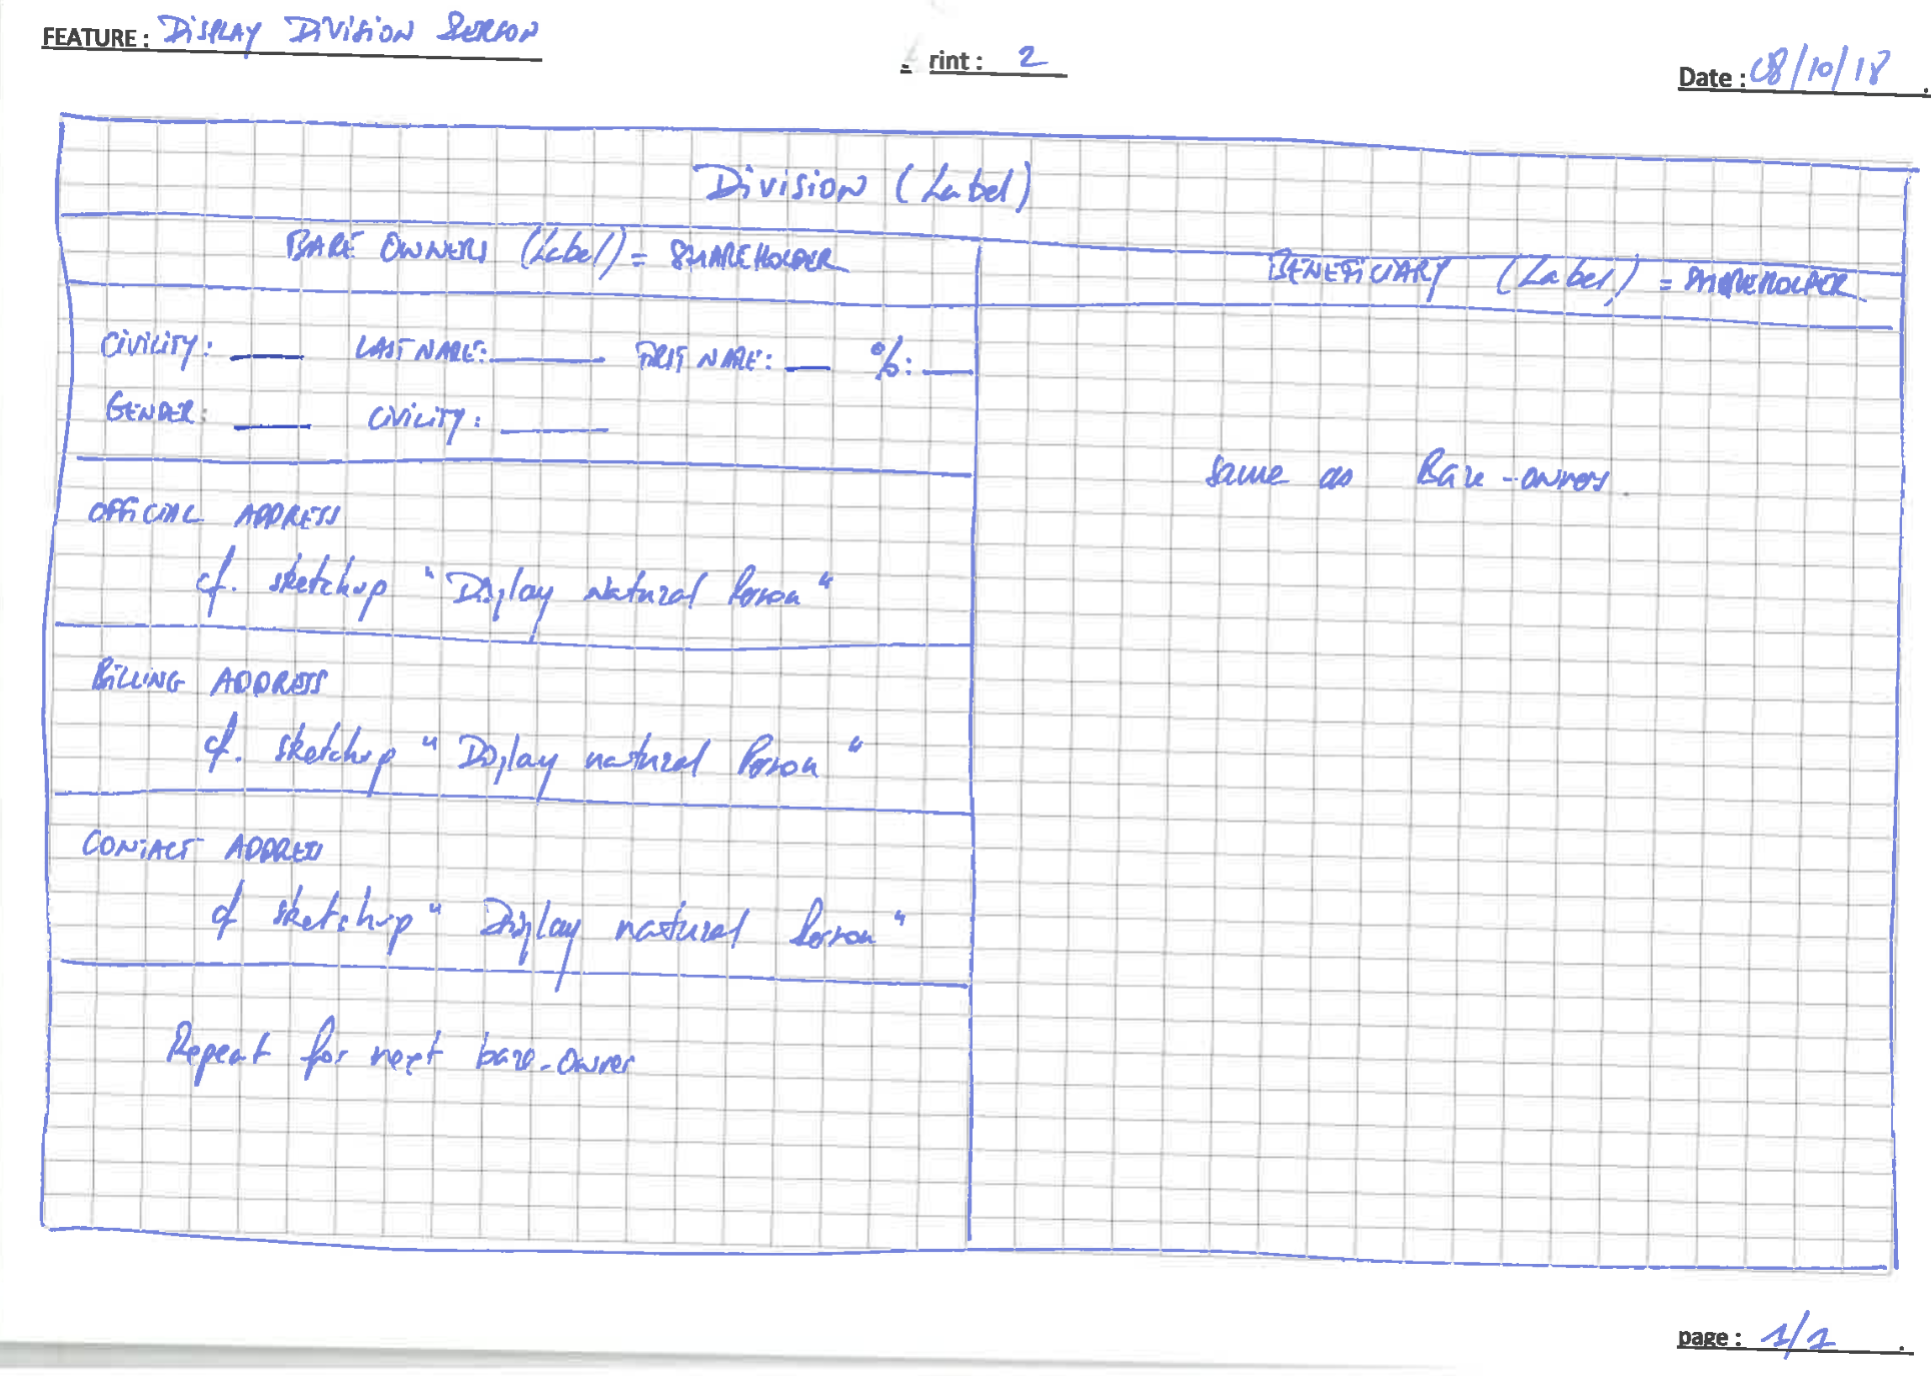 FEATURE : DISPLAY DIVISION PERSON
rint : 2
Date : 08/10/18
DIVISION (Label)
BARE OWNERS (Label) = SHAREHOLDER
BENEFICIARY (Label) = SHAREHOLDER
CIVILITY: LAST NAME: FIRST NAME: %:
GENDER: CIVILITY:
same as Bare-owner
OFFICIAL ADDRESS
cf. sketchup "Display Natural Person"
BILLING ADDRESS
cf. sketchup "Display natural Person"
CONTACT ADDRESS
cf sketchup "Display natural Person"
Repeat for next bare-owner
page : 1/1